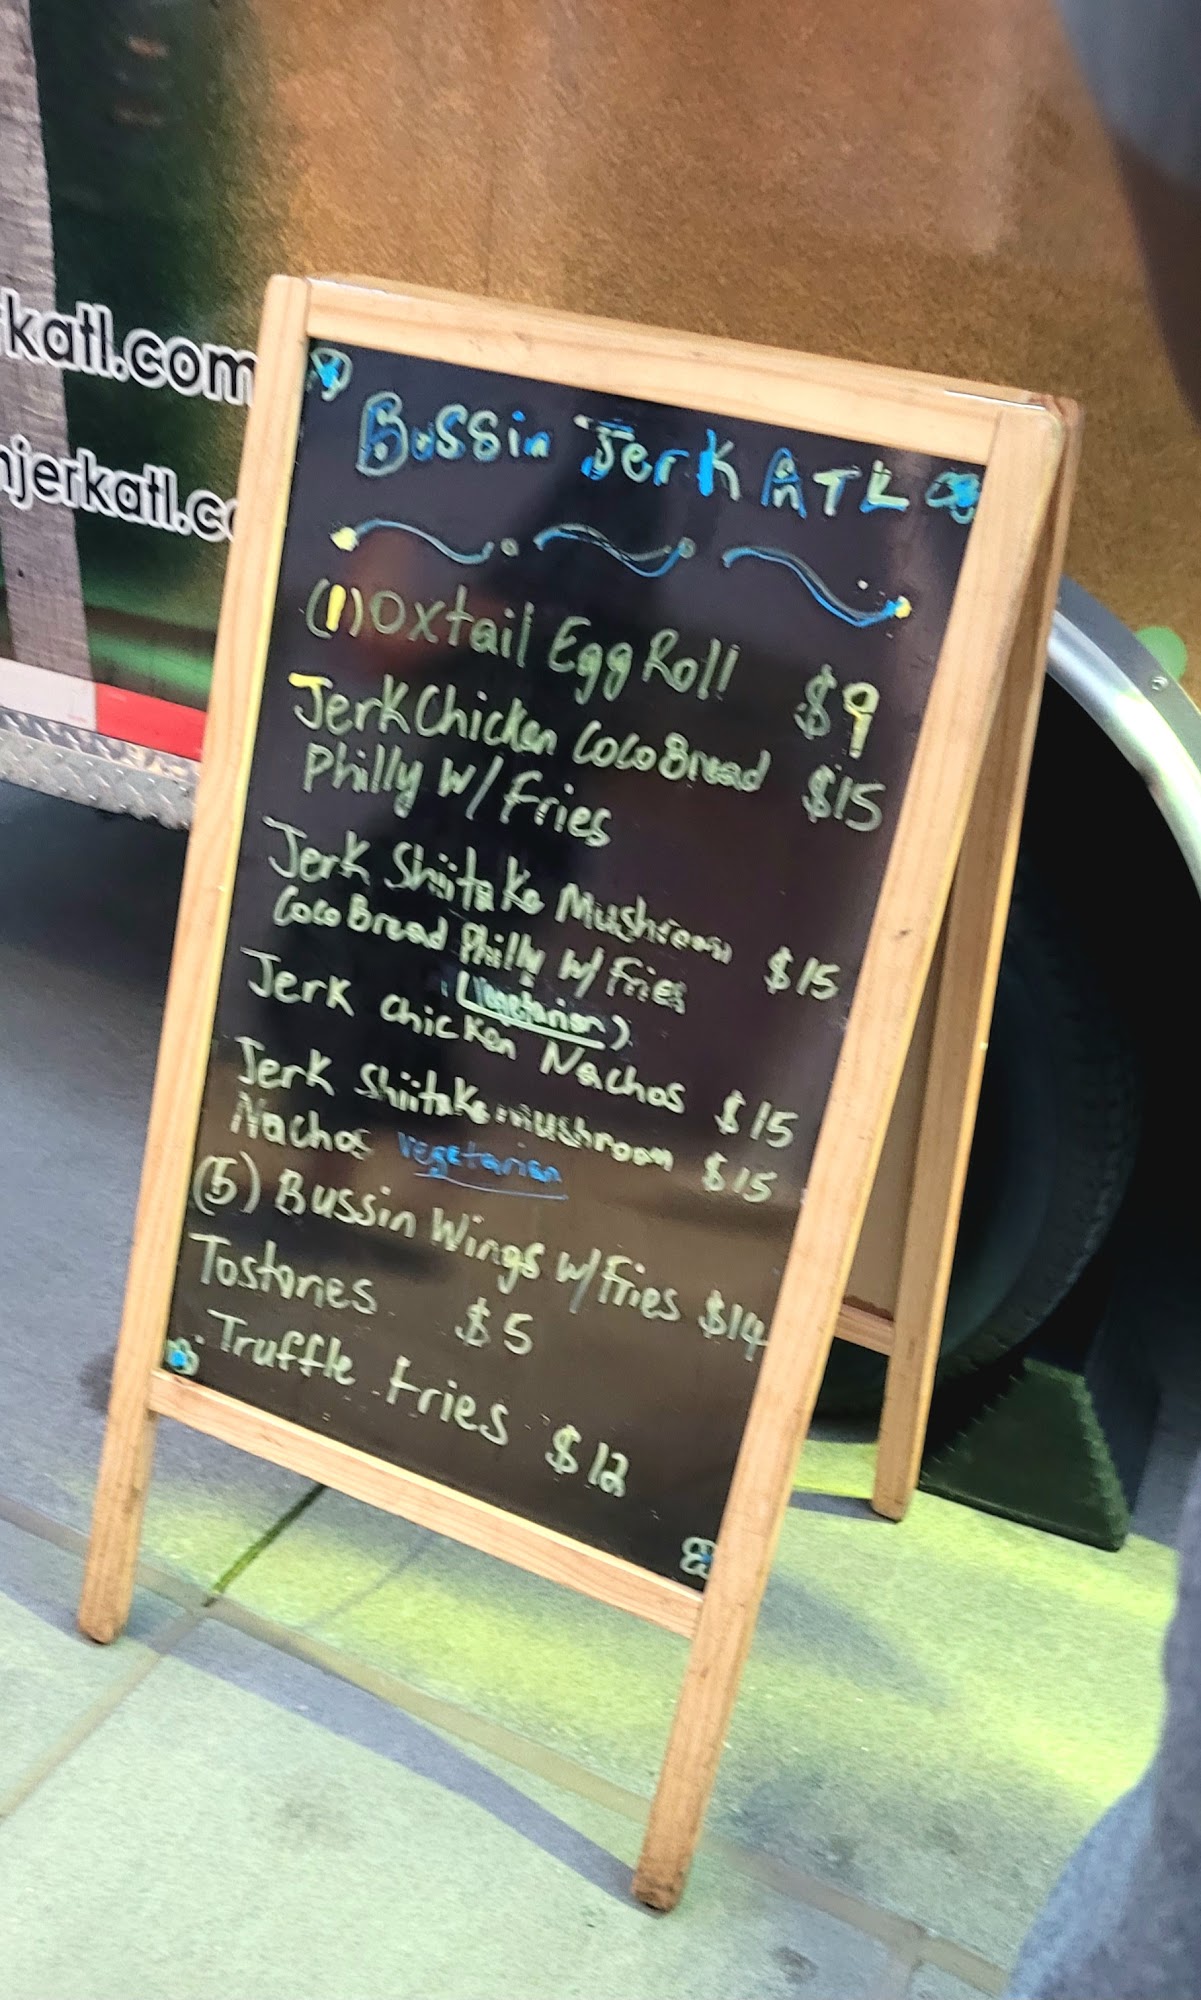 rkatl.com
njerkatl.co
Bussin Jerk ATL
(1) Oxtail Egg Roll $9
Jerk Chicken Coco Bread $15
Philly w/ Fries
Jerk Shiitake Mushroom $15
Coco Bread Philly w/ Fries
(Vegetarian)
Jerk Chicken Nachos $15
Jerk Shiitake mushroom $15
Nachos Vegetarian
(5) Bussin Wings w/ Fries $14
Tostones $5
Truffle Fries $12